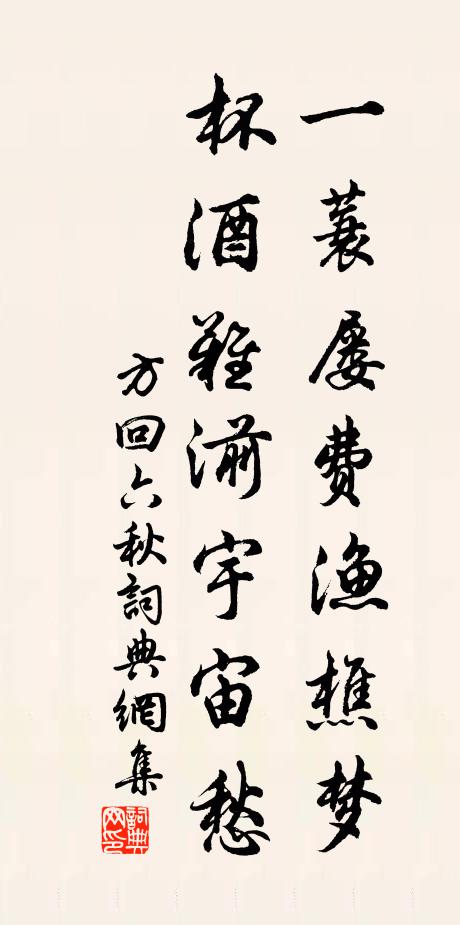 一蓑屡費渔樵梦
杯酒難湔宇宙愁
方回六秋詞典網集
詞典网印